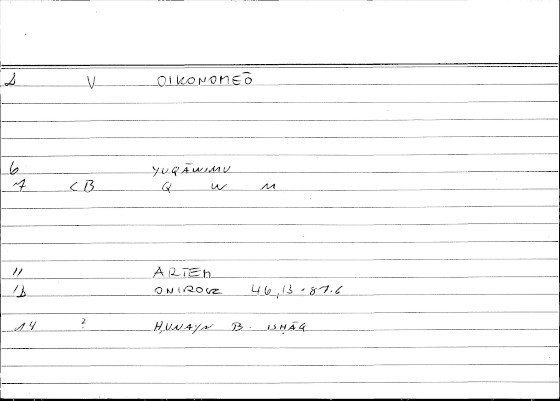 2 V OIKONOMEŌ
6 YUQĀWIMU
7 <B Q W M
11 ARTEM
12 ONIROCR 46,13-87.6
14 ? ḤUNAYN B. ISḤĀQ